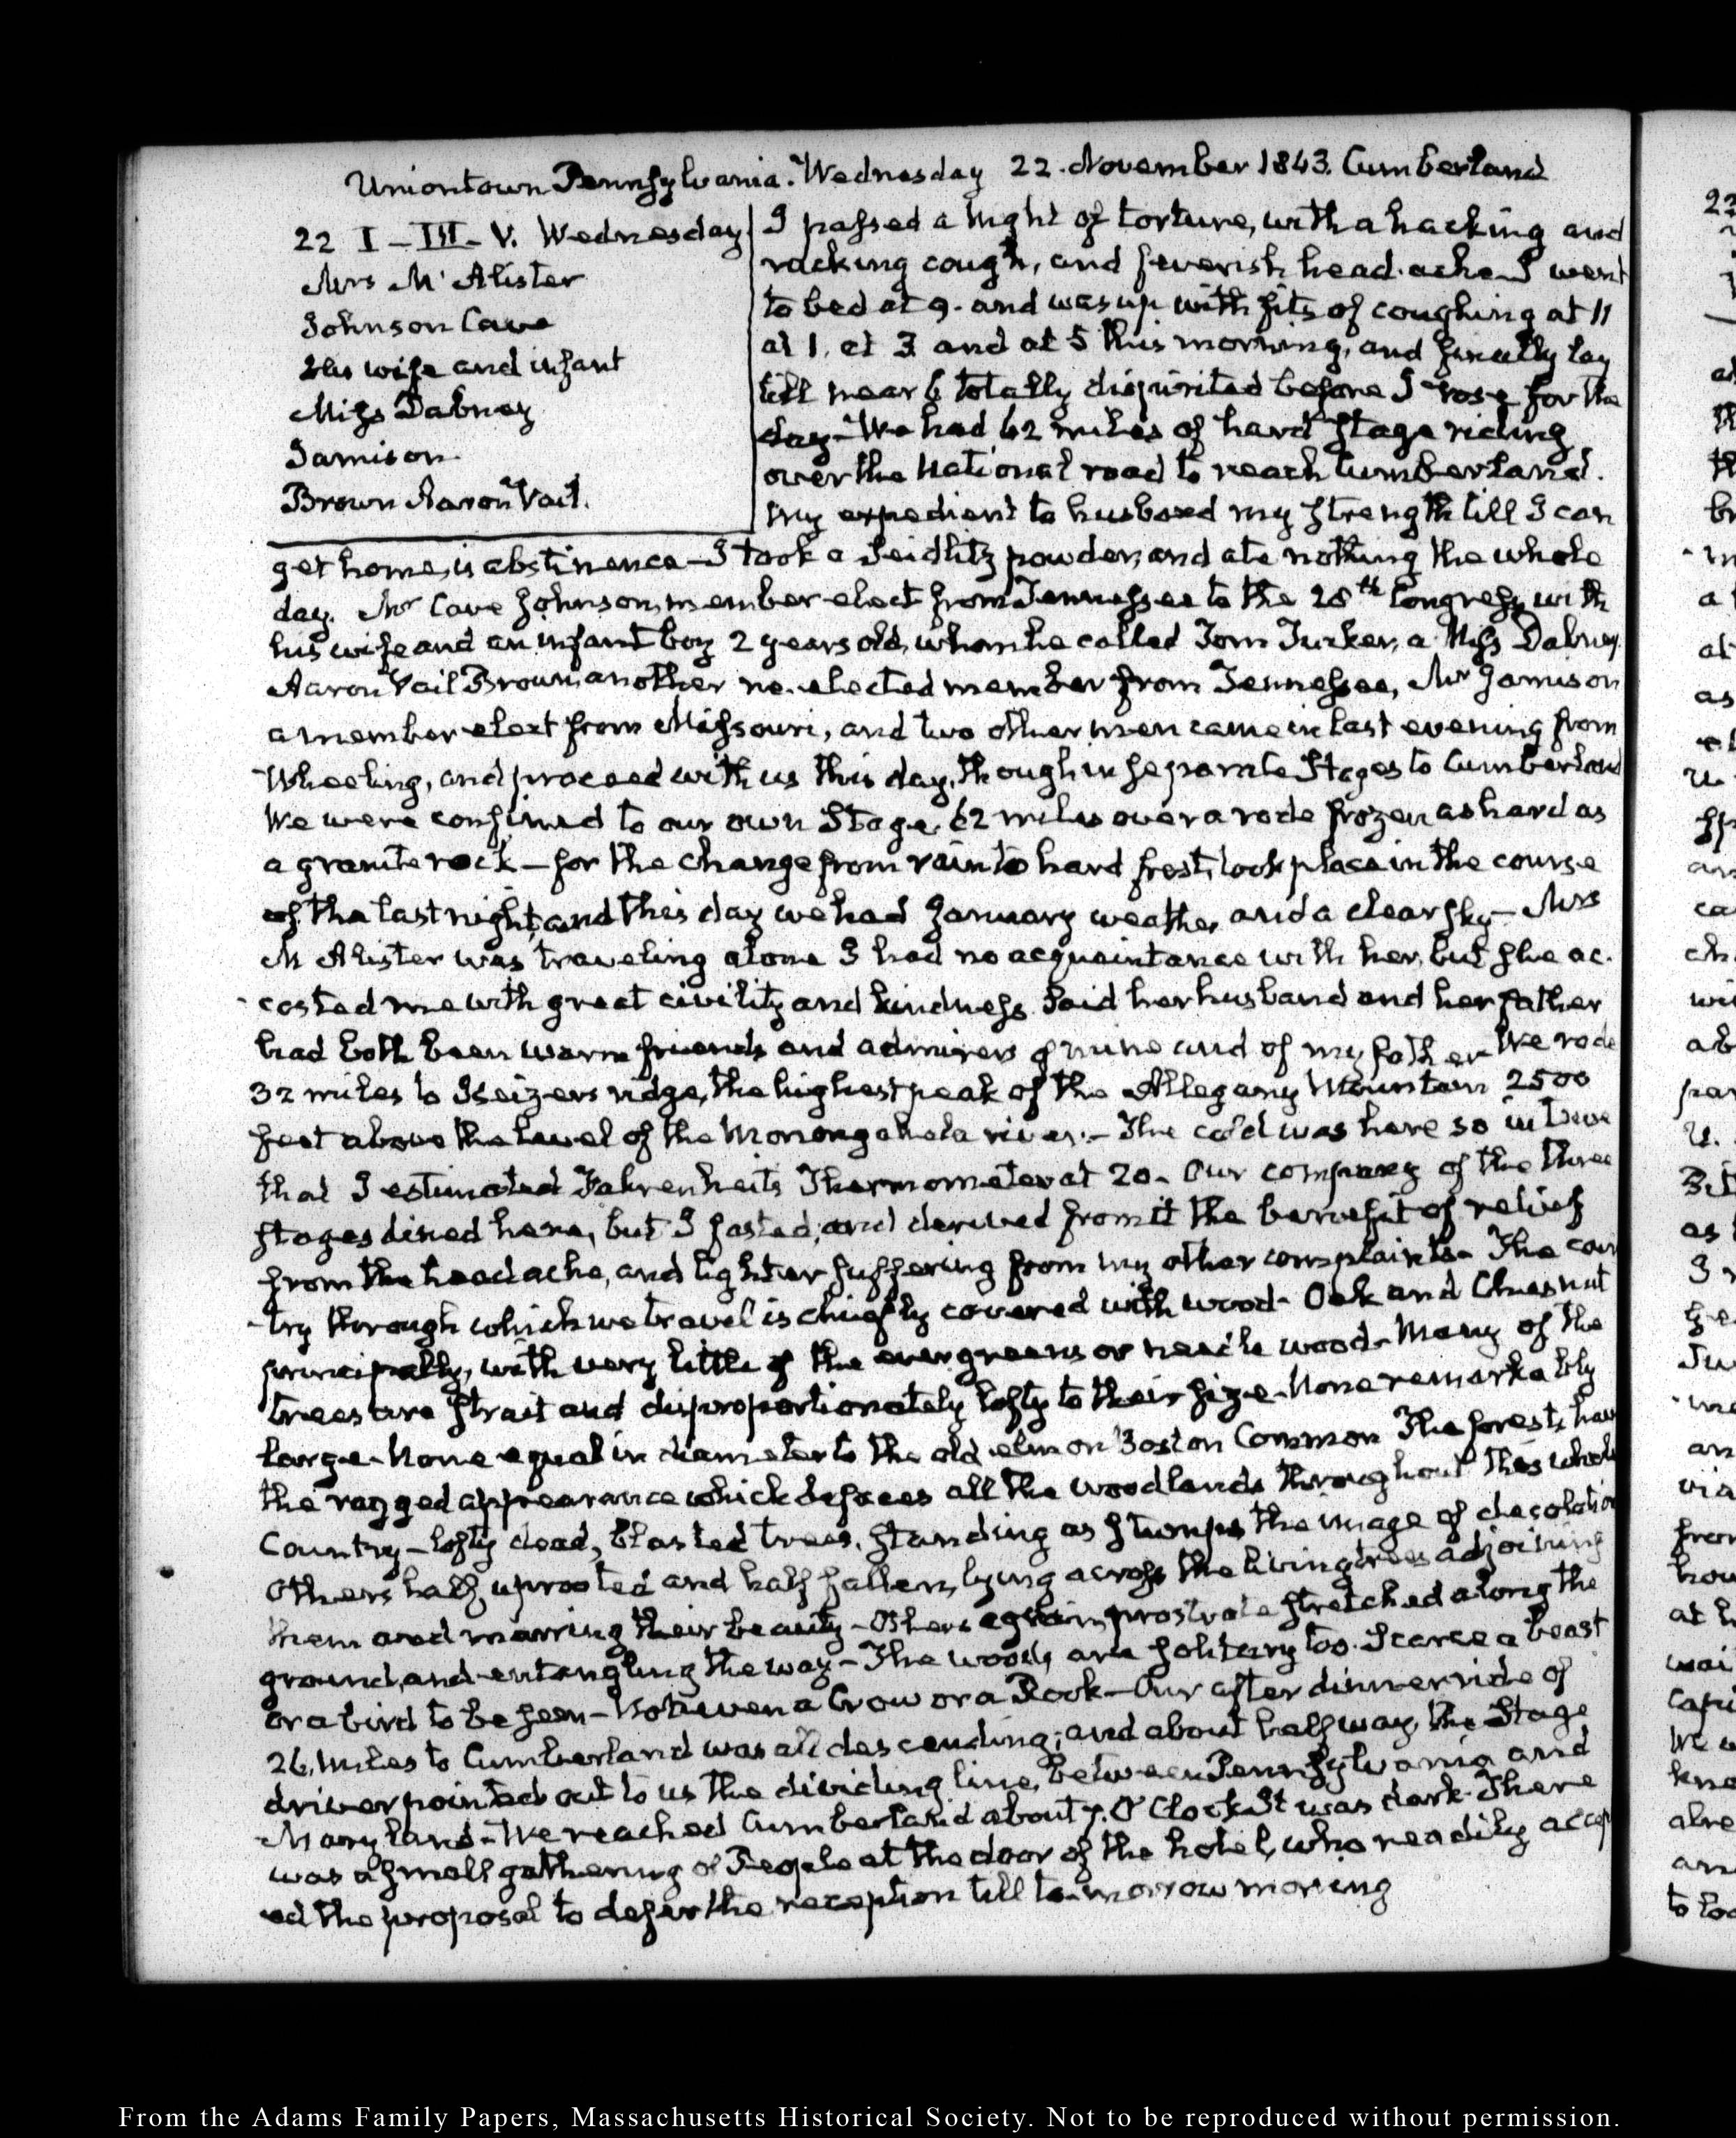 Uniontown Pennsylvania. Wednesday 22. November 1843. Cumberland
22 I–III–V. Wednesday
Mrs McAlister
Johnson Cave
His wife and infant
Miss Dabney
Jamison
Brown Aaron Vail.
I passed a night of torture, with a hacking and
racking cough, and feverish head-ache I went
to bed at 9. and was up with fits of coughing at 11
at 1. at 3 and at 5 this morning, and finally lay
till near 6 totally dispirited before I rose for the
day– We had 62 miles of hard stage riding
over the National road to reach Cumberland.
My expedient to husband my strength till I can
get home, is abstinence– I took a Seidlitz powder, and ate nothing the whole
day. Mr Cave Johnson, member elect from Tennessee to the 28th Congress, with
his wife and an infant boy 2 years old, whom he called Tom Tucker, a Miss Dabney.
Aaron Vail Brown, another re-elected member from Tennessee, Mr Jamison
a member elect from Missouri, and two other men came in last evening from
Wheeling, and proceed with us this day, though in separate Stages to Cumberland
We were confined to our own Stage, 62 miles over a rode frozen as hard as
a granite rock– for the change from rain to hard frost, took place in the course
of the last night, and this day we had January weather, and a clear sky– Mrs
McAlister was traveling alone I had no acquaintance with her, but she ac-
costed me with great civility and kindness. Said her husband and her father
had both been warm friends and admirers of mine and of my father We rode
32 miles to Keizers ridge, the highest peak of the Allegany Mountain 2500
feet above the level of the Monongahela river.– The cold was here so intense
that I estimated Fahrenheits Thermometer at 20– Our company of the three
stages dined here, but I fasted, and derived from it the benefit of relief
from the headache, and lighter suffering from my other complaints– The coun
-try through which we travel is chiefly covered with wood– Oak and Chesnut
principally, with very little of the evergreens or needle wood– Many of the
trees are strait and disproportionately lofty to their size– None remarkably
large– None equal in diameter to the old elm on Boston Common The forests have
the ragged appearance which defaces all the woodlands throughout this whole
Country– lofty dead, blasted trees, standing as stumps the image of desolation
Others half uprooted and half fallen, lying across the living trees adjoining
them and marring their beauty– Others again prostrate stretched along the
ground, and entangling the way– The woods are solitary too. Scarce a beast
or a bird to be seen– Not even a Crow or a Rook– Our after dinner ride of
26. miles to Cumberland was all descending; and about half way, the Stage
driver pointed out to us the dividing line, between Pennsylvania and
Maryland– We reached Cumberland about 7. O'Clock It was dark– There
was a small gathering of People at the door of the hotel, who readily accept
ed the proposal to defer the reception till to-morrow morning
From the Adams Family Papers, Massachusetts Historical Society. Not to be reproduced without permission.